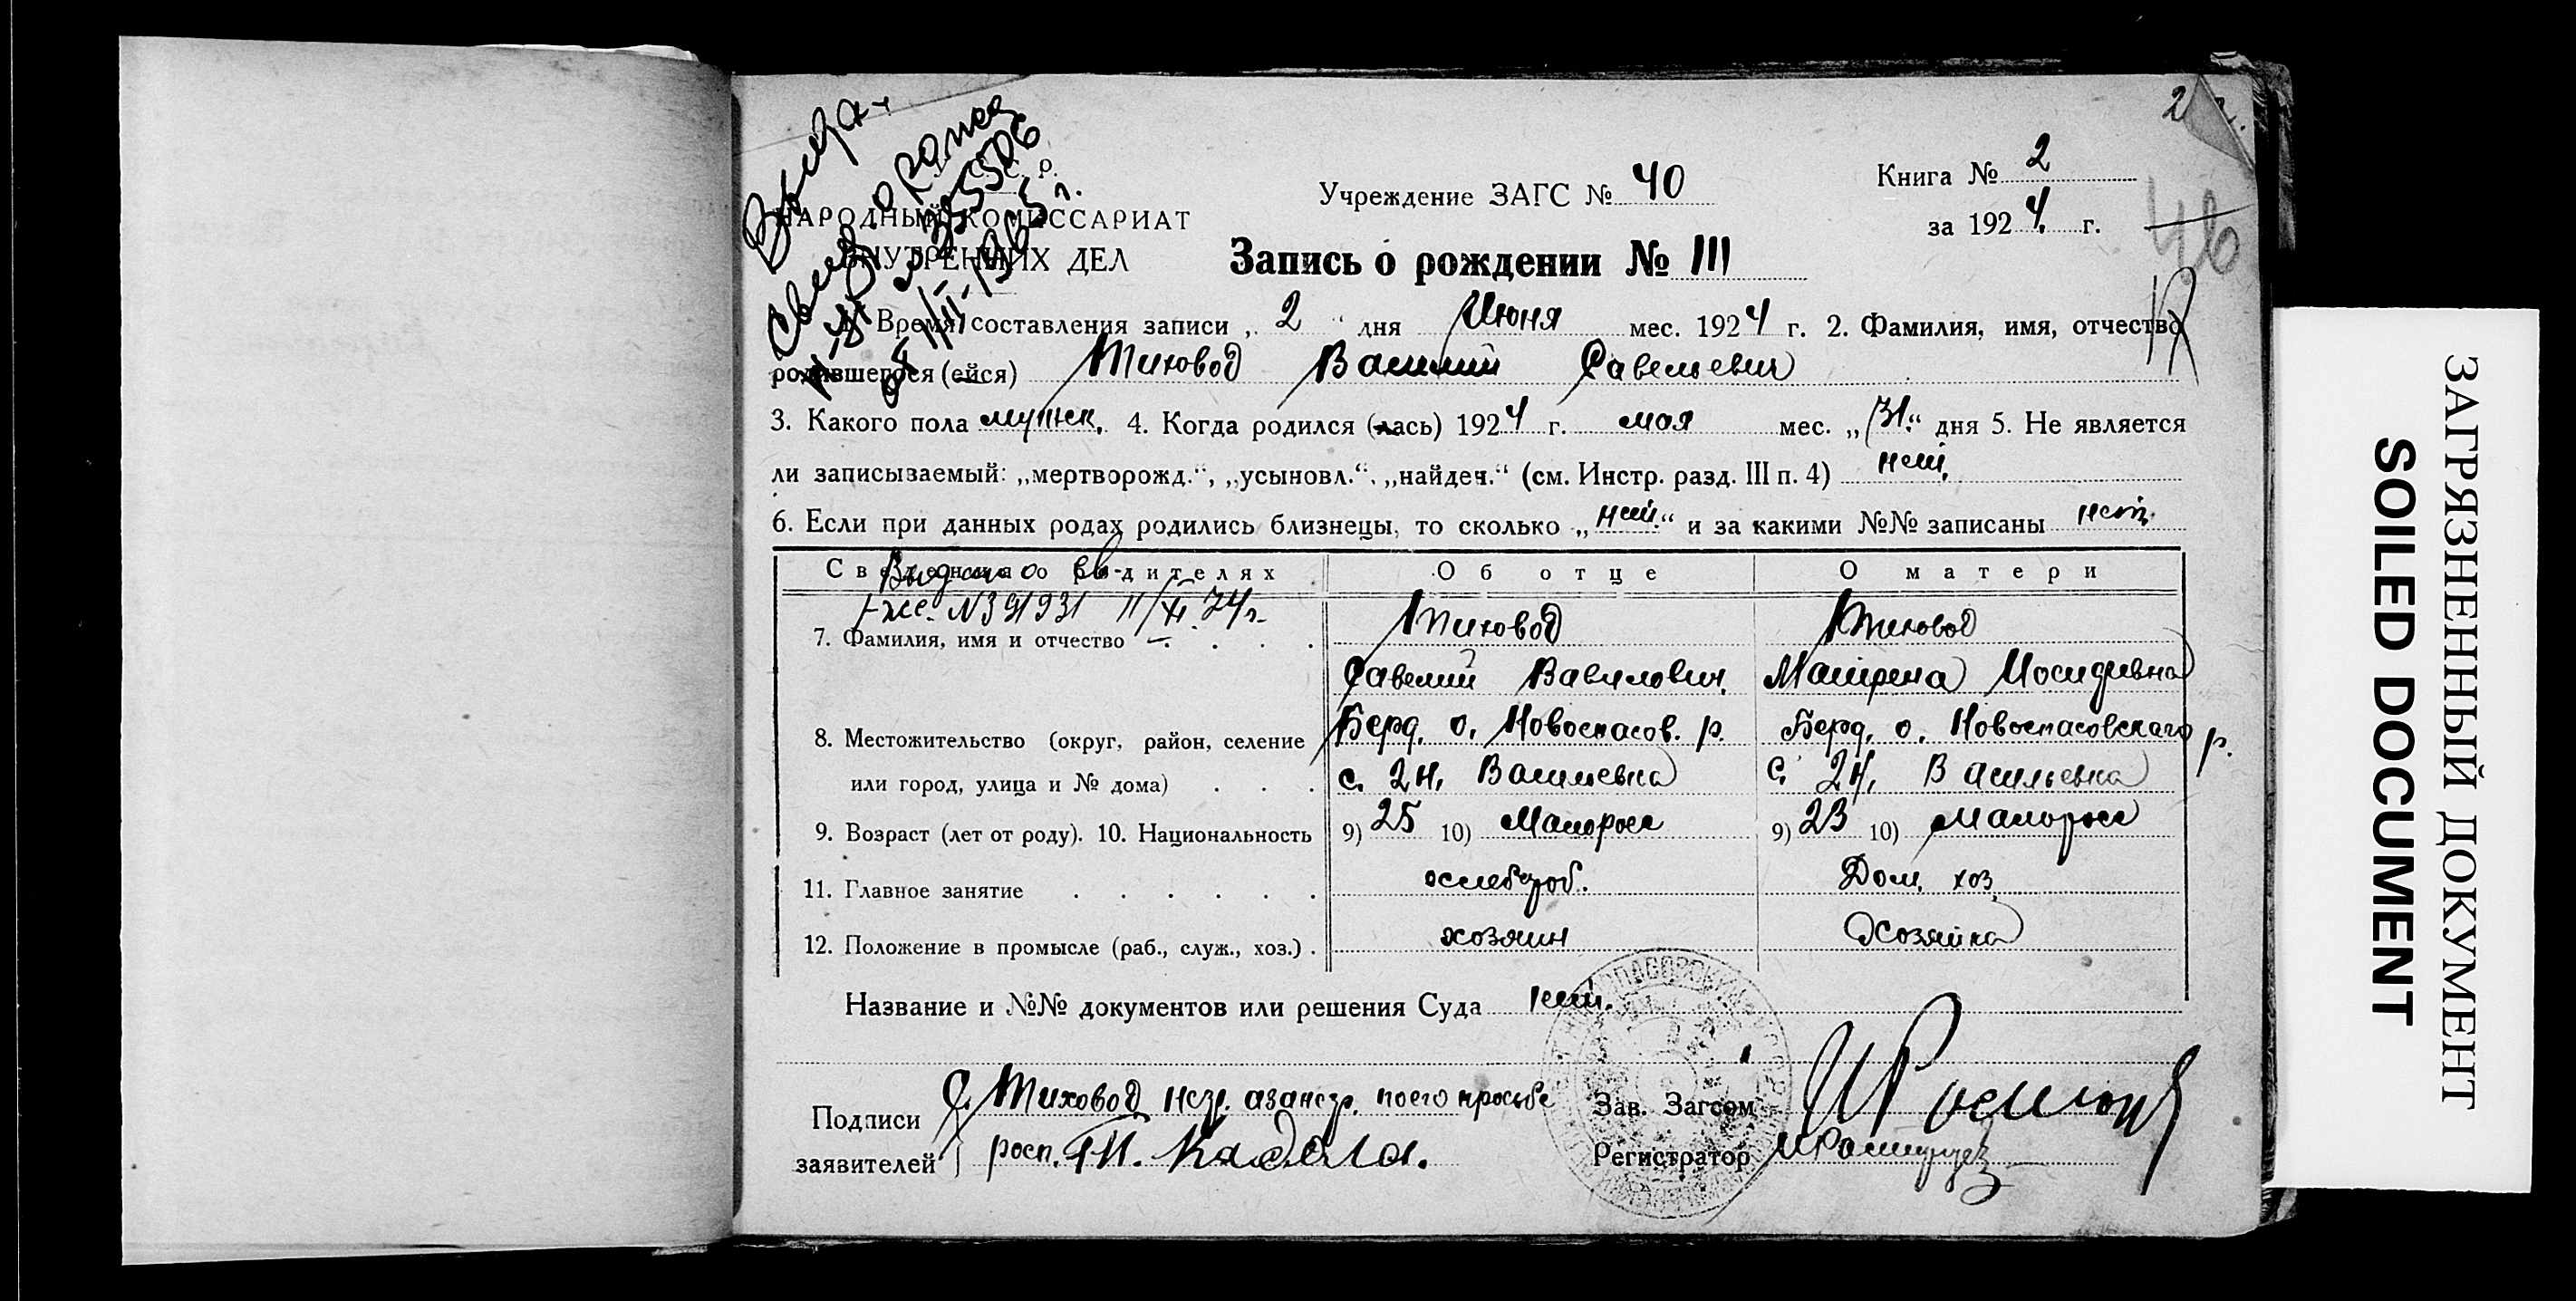 Выдан
У. С. С. Р.
НАРОДНЫЙ КОМИССАРИАТ
ВНУТРЕННИХ ДЕЛ
Учреждение ЗАГС № 40
Книга № 2
за 1924 г.
46
Запись о рождении № 111
1. Время составления записи „ 2 “ дня Июня мес. 1924 г. 2. Фамилия, имя, отчество
родившегося (ейся) Тиховод Василий Савельевич
3. Какого пола мужск. 4. Когда родился (лась) 1924 г. мая мес. „31“ дня 5. Не является
ли записываемый: „мертворожд.“, „усыновл.“, „найдеч.“ (см. Инстр. разд. III п. 4) нет.
6. Если при данных родах родились близнецы, то сколько „нет.“ и за какими №№ записаны нет.
Сведения о родителях Об отце О матери
Выдано св-
N 391931 11/XI 74г.
7. Фамилия, имя и отчество Тиховод Тиховод
Савелий Вавилович. Матрена
8. Местожительство (округ, район, селение Берд. о. Новоспасов. р. Берд. о. Новоспасовскаго р.
или город, улица и № дома) с. 2 Н. Васильевка с. 2 Н. Васильевка
9. Возраст (лет от роду). 10. Национальность 9) 25 10) Малоросс 9) 23 10) Малоросс
11. Главное занятие хлебороб. Дом. хоз.
12. Положение в промысле (раб., служ., хоз.) хозяин Хозяйка
Название и №№ документов или решения Суда нет.
Подписи С. Тиховод негр. а за негр. по его просьбе
заявителей росп.
Зав. Загсом
Регистратор
ЗАГРЯЗНЕННЫЙ ДОКУМЕНТ
SOILED DOCUMENT